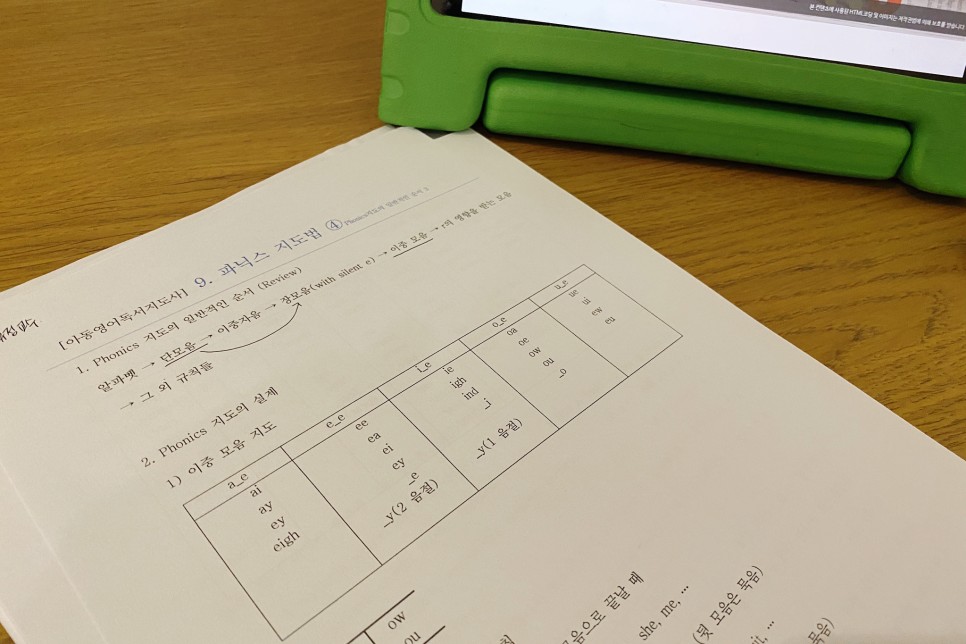 본 컨텐츠에 사용된 HTML코딩 및 이미지는 저작권법에 의해 보호를 받습니다
[아동영어독서지도사] 9. 파닉스 지도법 ④
1. Phonics 지도의 일반적인 순서 (Review)
알파벳 → 단모음 → 이중자음 → 장모음(with silent e) → 이중 모음 → r의 영향을 받는 모음
→ 그 외 규칙들
2. Phonics 지도의 실제
1) 이중 모음 지도
a_e e_e i_e o_e u_e
ai ee ie oa ue
ay ea igh oe ui
ey ei ind ow ew
eigh ey _i ou eu
_e _y(1 음절) _o
_y(2 음절)
ow
ou
모음으로 끝날 때
she, me, ...
(뒷 모음은 묵음)
묵음)